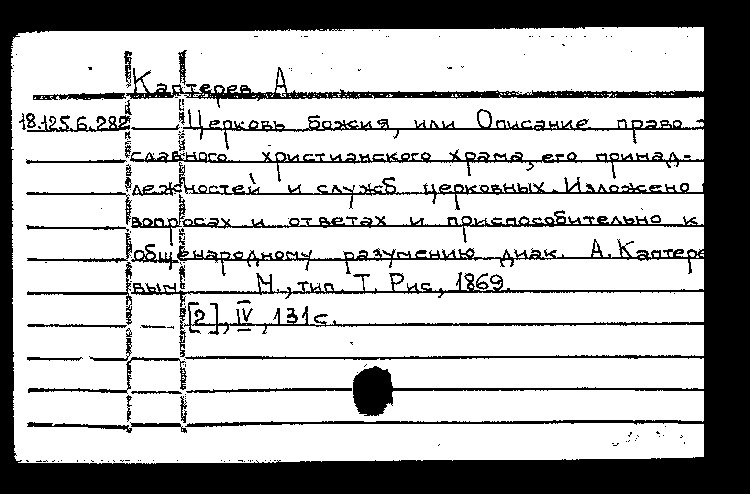 Каптерев, А.
18.125.6.282 Церковь Божия, или Описание право
славного христианского храма, его принад-
лежностей и служб церковных. Изложено
вопросах и ответах и приспособительно к
общенародному разумению диак. А. Каптере
вым М., тип. Т. Рис, 1869.
[2], IV, 131 с.